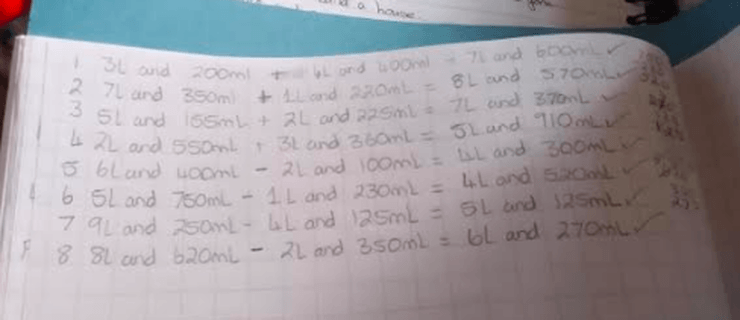 a house
1 3L and 200ml + 4L and 400ml = 7L and 600mL ✓
2 7L and 350ml + 1L and 220mL = 8L and 570mL ✓
3 5L and 155mL + 2L and 225ml = 7L and 370mL ✓
4 2L and 550mL + 3L and 360mL = 5L and 910mL ✓
5 6L and 400mL - 2L and 100mL = 4L and 300mL ✓
6 5L and 750mL - 1L and 230mL = 4L and 520mL ✓
7 9L and 250mL - 4L and 125mL = 5L and 125mL ✓
8 8L and 620mL - 2L and 350mL = 6L and 270mL ✓